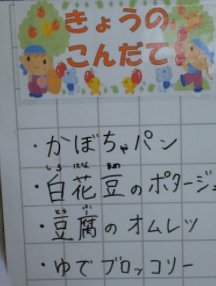 きょうの
こんだて
・かぼちゃパン
・白花豆のポタージュ
しろ はな まめ
・豆腐のオムレツ
とう ふ
・ゆでブロッコリー